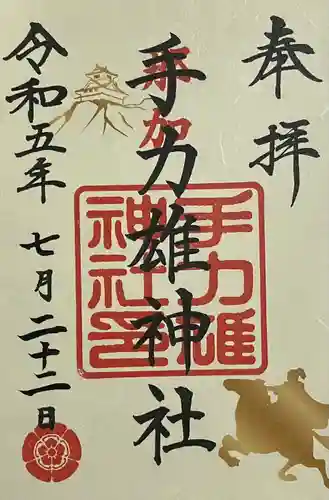 奉拝
那加
手力雄神社
手力雄
神社印
令和五年 七月二十二日